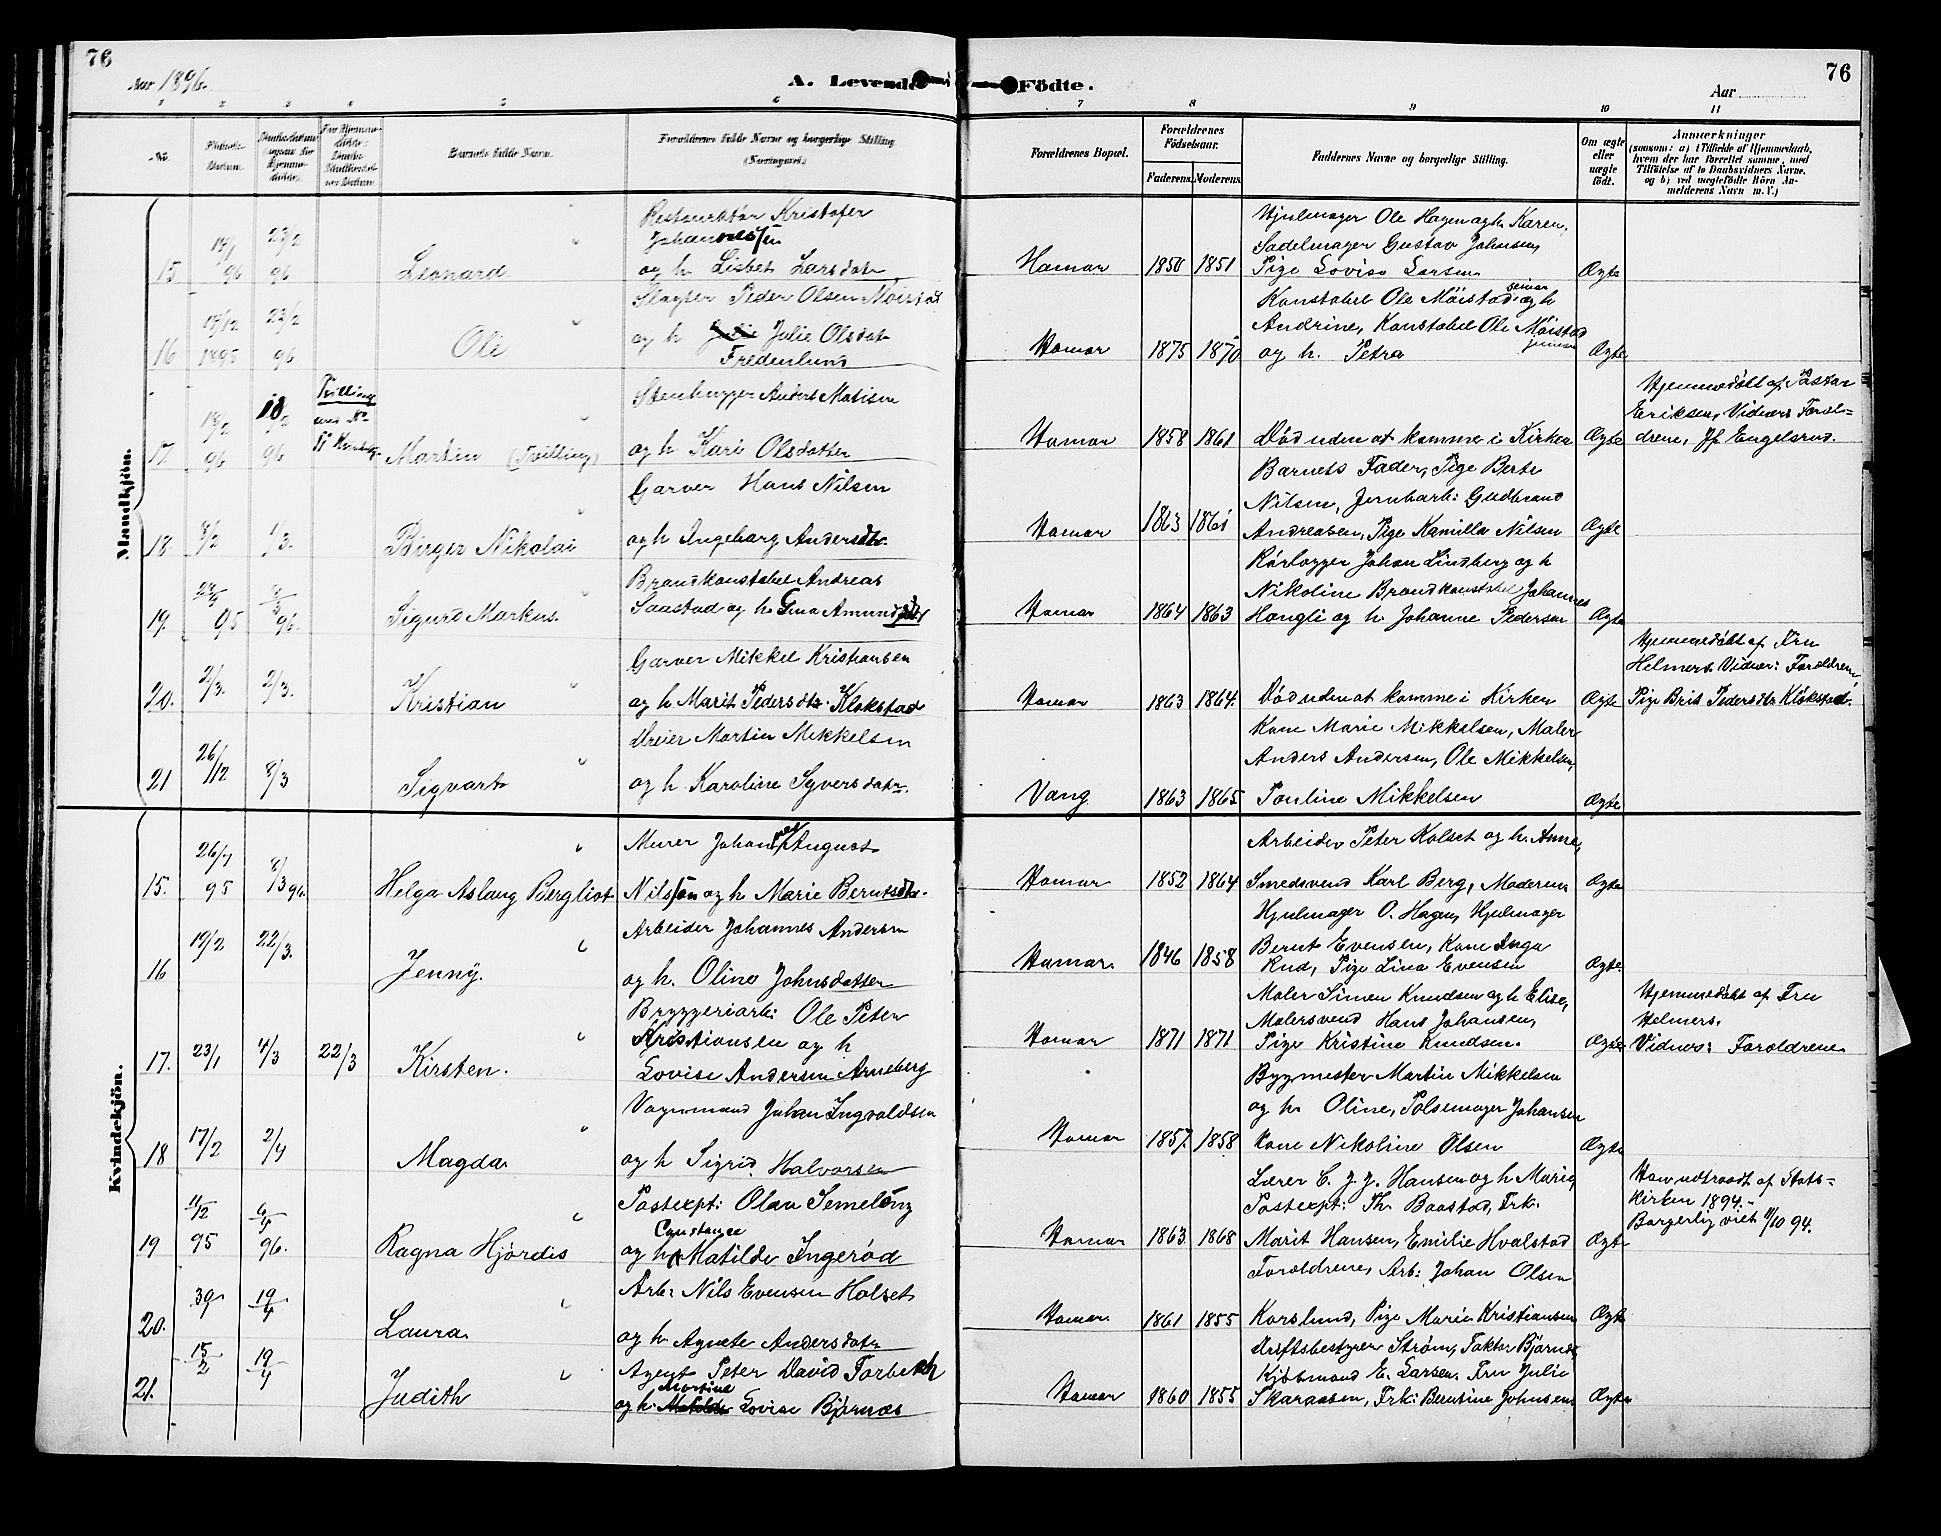 76
Aar 1896.
A. Levende
Födte.
76
Aar
1 2 3 4 5 6 7 8 9 10 11
No.
Fødsels-Datum.
Barnets fulde Navn.
Forældrenes fulde Navne og borgerlige Stilling
(Næringsvei.)
Forældrenes Bopæl.
Forældrenes Födselsaar.
Faderens. Moderens.
Faddernes Navne og borgerlige Stilling.
Om ægte eller uægte födt.
Anmærkninger
(saasom: a) i Tilfælde af Hjemmedaab,
hvem der har forrettet samme, med
Tilföielse af to Daabsvidners Navne,
og b) ved uægtefödte Börn An-
melderens Navn m. V.)
Mandkjön.
15 18/1 96 23/2 96 Leonard
Restauratør Kristofer
Johannessen
og h. Lisbet Larsdatr
Hamar 1850 1851
Hjulmager Ole Hagen og h. Karen,
Sadelmager Gustav Johnsen,
Pige Lovise Larsen
Ægte
16 18/12 1895 23/2 96 Ole
Slagter Peder Olsen Möistad
og h Julie Olsdat
Fredenlund
Hamar 1875 1870
Konstabel Ole Möistad senior og h
Andrine, Konstabel Ole Möistad junior
og h. Petra
Ægte
17. 18/2 96 18/2 96 Tvilling
med No
Martin (Tvilling)
Stenhugger Anders Matisen
og h Kari Olsdatter
Hamar 1858 1861
Död uden at komme i Kirken
Ægte
Hjemmedöbt af Pastor
Eriksen, Vidner: Foræl-
drene, Jf Engelsrud.
18. 8/2 1/3. Birger Nikolai
Garver Hans Nilsen
og h Ingeborg Andersdtr.
Hamar 1863 1861
Barnets Fader, Pige Berte
Nilsen, Jernbarb: Gudbrand
Andreasen, Pige Kamilla Nilsen
Ægte
19. 95 96. Sigurd Markus.
Brandkonstabel Andreas
Saastad og h. Gina Amundsdtr
Hamar 1864 1863
Rörlægger Johan Lindberg og h
Nikoline Brandkonstabel Johannes
Hongli og h. Johanne Pedersen
Ægte
20. 2/3. 2/3. Kristian
Garver Mikkel Kristiansen
og h Marit Pedersdtr. Klokstad
Hamar 1863 1864.
Död uden at komme i Kirken
Ægte
Hjemmedöbt af Fru
Helmers. Vidner: Forældrene,
Pige Brit Pedersdtr Klokstad.
21 26/12 8/3 Sigvart
Dreier Martin Mikkelsen
og h Karoline Syversdatr.
Vang 1863 1865
Kone Marie Mikkelsen, Maler
Anders Andersen, Ole Mikkelsen,
Pauline Mikkelsen
Ægte
Kvindekjön.
15. 26/7 95 8/3 96. Helga Aslaug Bergliot
Murer Johan August
Nilssön og h Marie Berntsdtr.
Hamar 1852 1864
Arbeider Peter Kolset og h. Anne,
Smedsvend Karl Berg, Moderen
Ægte
16 19/2 22/3. Jenny.
Arbeider Johannes Andersen
og h. Oline Johnsdatter
Hamar. 1846 1858
Hjulmager O. Hagen, Hjulmager
Bernt Evensen, Kone Inga
Rud, Pige Lina Evensen
Ægte.
17. 23/1 4/3 22/3 Kirsten.
Bryggeriarb: Ole Peter
Kristiansen og h
Lovise Andersen Arneberg
Hamar 1871 1871
Maler Simen Knudsen og h Elise,
Malersvend Hans Johansen,
Pige Kristine Knudsen.
Ægte
Hjemmedöbt af Fru
Helmers.
Vidner: Forældrene
18 17/2 2/4 Magda
Vognmand Johan Ingvaldsen
og h Sigrid Halvorsen
Hamar 1857. 1858
Bygmester Martin Mikkelsen
og h. Oline, Pölsemager Johansen
Kone Nikoline Olsen
Ægte
19 11/12 95 6/4 96. Ragna Hjördis
Postexpt: Olav Semeleng
Constance
og h Matilde Ingeröd
Hamar 1863. 1868
Lærer C. J. J. Hansen og h Marie,
Postexpt: Th. Baastad, Frk:
Marit Hansen, Emilie Hvalstad
Ægte
Han udtraadt af Stats-
kirken 1894.-
Borgerlig viet 11/10 94.
20. 19/4 Laura
Arb: Nils Evensen Holset
og h. Agnete Andersdatr
Hamar 1861 1855
Forældrene, Arb: Johan Olsen
Korslund, Pige Marie Kristiansen
Ægte
21. 15/2 19/4 Judith
Agent Peter David Forbech
Martine
og h. Lovise Björnæs
Hamar 1860 1855
Driftsbestyrer Ström, Faktor Björnæs,
Kjöbmand E. Larsen. Fru Julie
Skaraasen, Frk: Berntine Johnsen
Ægte